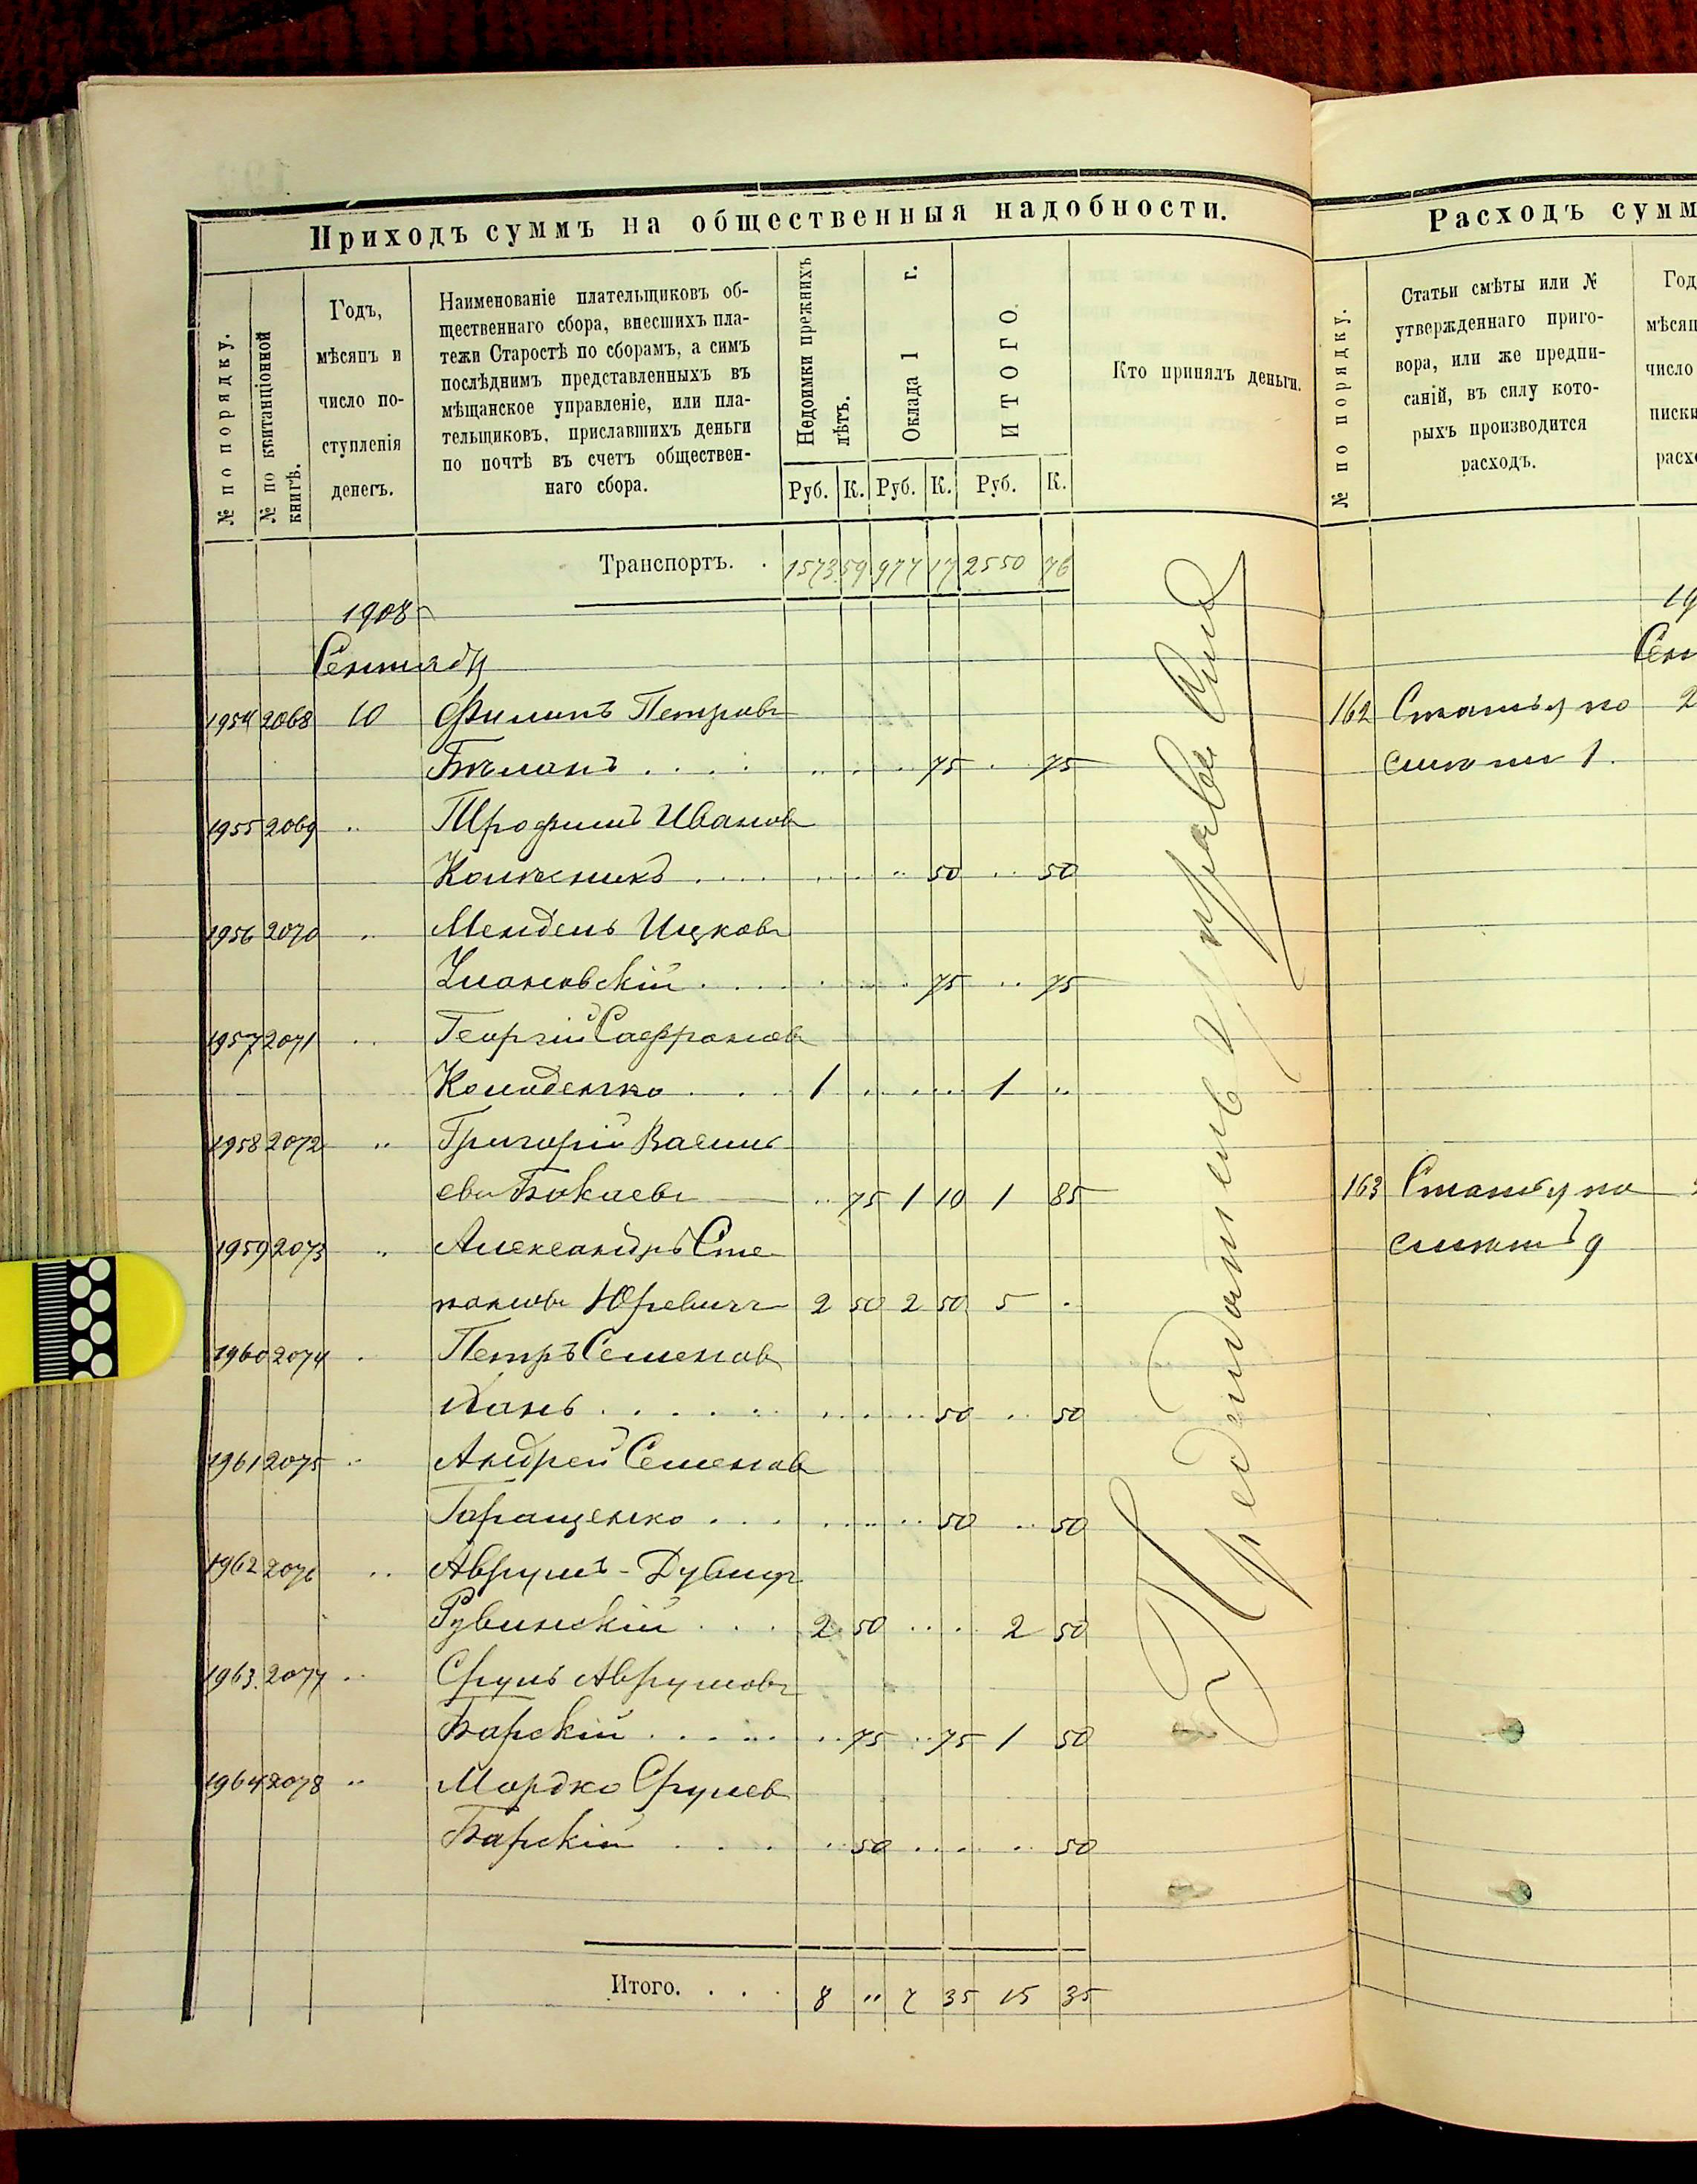 Приходъ суммъ на общественныя надобности.
№ по порядку.
№ по квитанціонной
книгѣ.
Годъ,
мѣсяцъ и
число по-
ступленія
денегъ.
Наименованіе плательщиковъ об-
щественнаго сбора, внесшихъ пла-
тежи Старостѣ по сборамъ, а симъ
послѣднимъ представленныхъ въ
мѣщанское управленіе, или пла-
тельщиковъ, приславшихъ деньги
по почтѣ въ счетъ обществен-
наго сбора.
Недоимки прежнихъ
лѣтъ.
Оклада 1 г.
ИТОГО.
Кто принялъ деньги.
Руб. К. Руб. К. Руб. К.
Транспортъ. . 1573 59 977 17 2550 76
1908
Сентябр
1954 2068 10 Филипъ Петровъ
. . . . 75 . 75
1955 2069 .. Трофимъ Ивановъ
Колесникъ . . . . 50 .. 50
1956 2070 .. Мендель Ицковъ
Улановскій . . . . 75 .. 75
1957 2071 .. Георгій Сафроновъ
Коломенко . . . 1 .. .... 1 ..
1958 2072 .. Григорій Василь
евъ Бокаевъ .. 75 1 10 1 85
1959 2073 .. Александръ Сте
пановъ Юревичъ 2 50 2 50 5 .
1960 2074 . Петръ Семеновъ
. . . . . 50 .. 50
1961 2075 .. Андрей Семеновъ
Таращенко . . . 50 .. 50
1962 2076 .. Аврумъ-Дувидъ
Рувинскій . . . 2 50 ... . 2 50
1963. 2077 .. Сруль Аврумовъ
Барскій . . . . .. 75 .. 75 1 50
1964 2078 .. Мордко Срулевъ
Барскій . . . .. 50 . . . . 50
Предсидатель Управы
Итого. . . . 8 ,, 7 35 15 35
Расходъ сумм
№ по порядку.
Статьи смѣты или №
утвержденнаго приго-
вора, или же предпи-
саній, въ силу кото-
рыхъ производится
расходъ.
Год
мѣсяц
число
писки
расхо
19
Сен
162 Статья по 2
смѣти 1.
163 Статья по
смѣтѣ 9